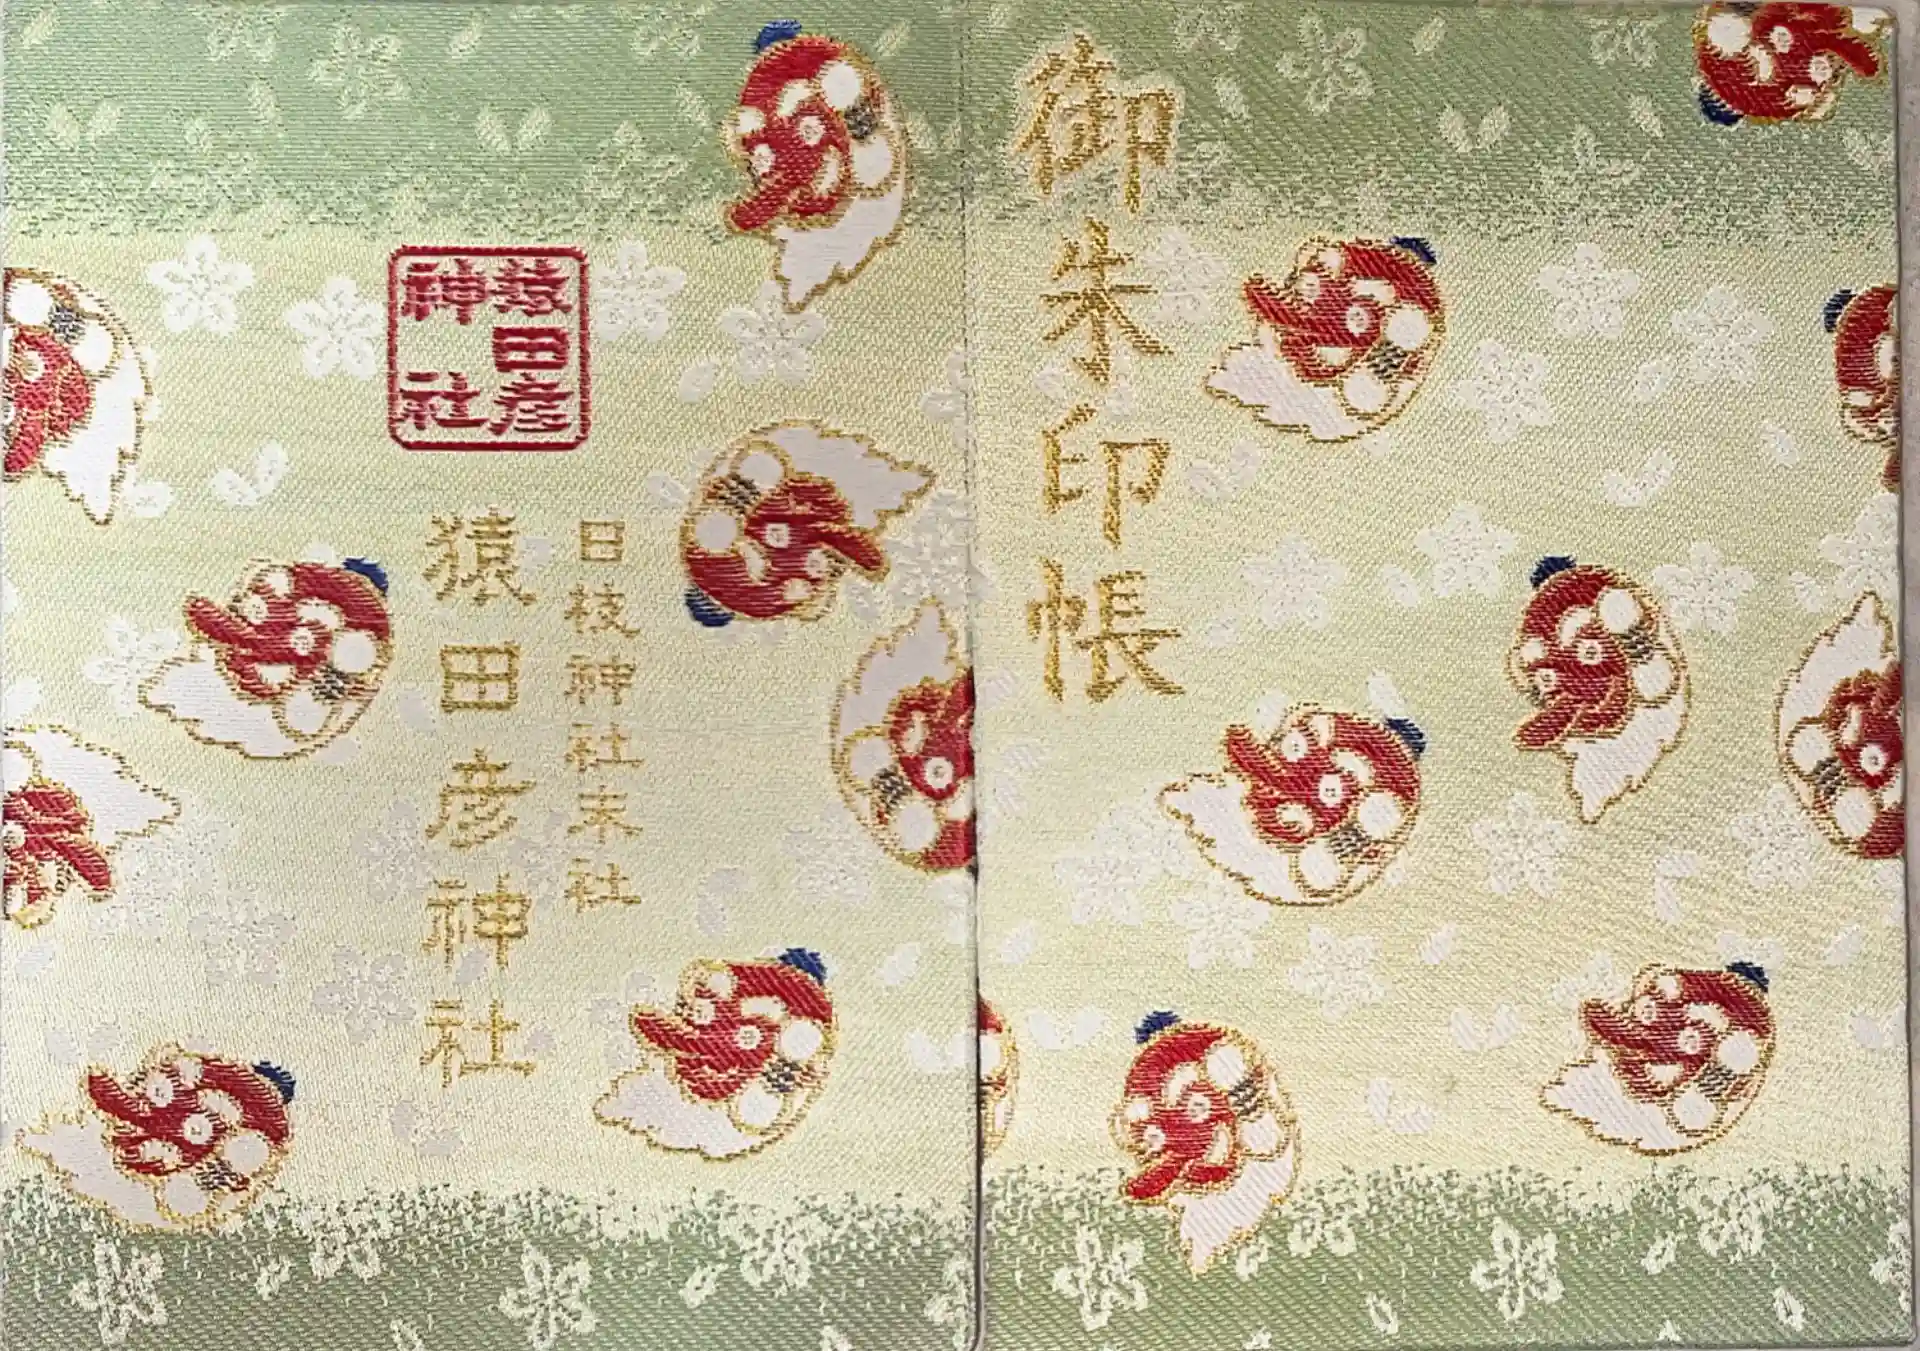 御朱印帳
猿田彦
神社
日枝神社末社
猿田彦神社